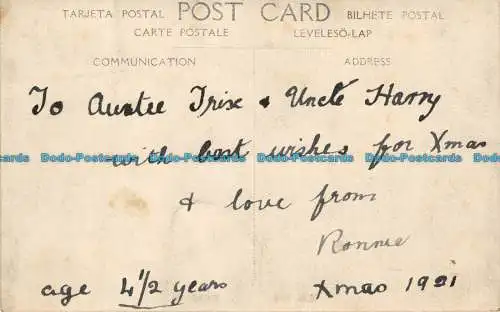 TARJETA POSTAL POST CARD BILHETE POSTAL
CARTE POSTALE LEVELESÖ-LAP
COMMUNICATION ADDRESS
To Auntee Trix & Uncle Harry
with best wishes for Xmas
Dodo-Postcards Dodo-Postcards Dodo-Postcards Dodo-Postcards
& love from
Ronnie
age 4 1/2 years Xmas 1921